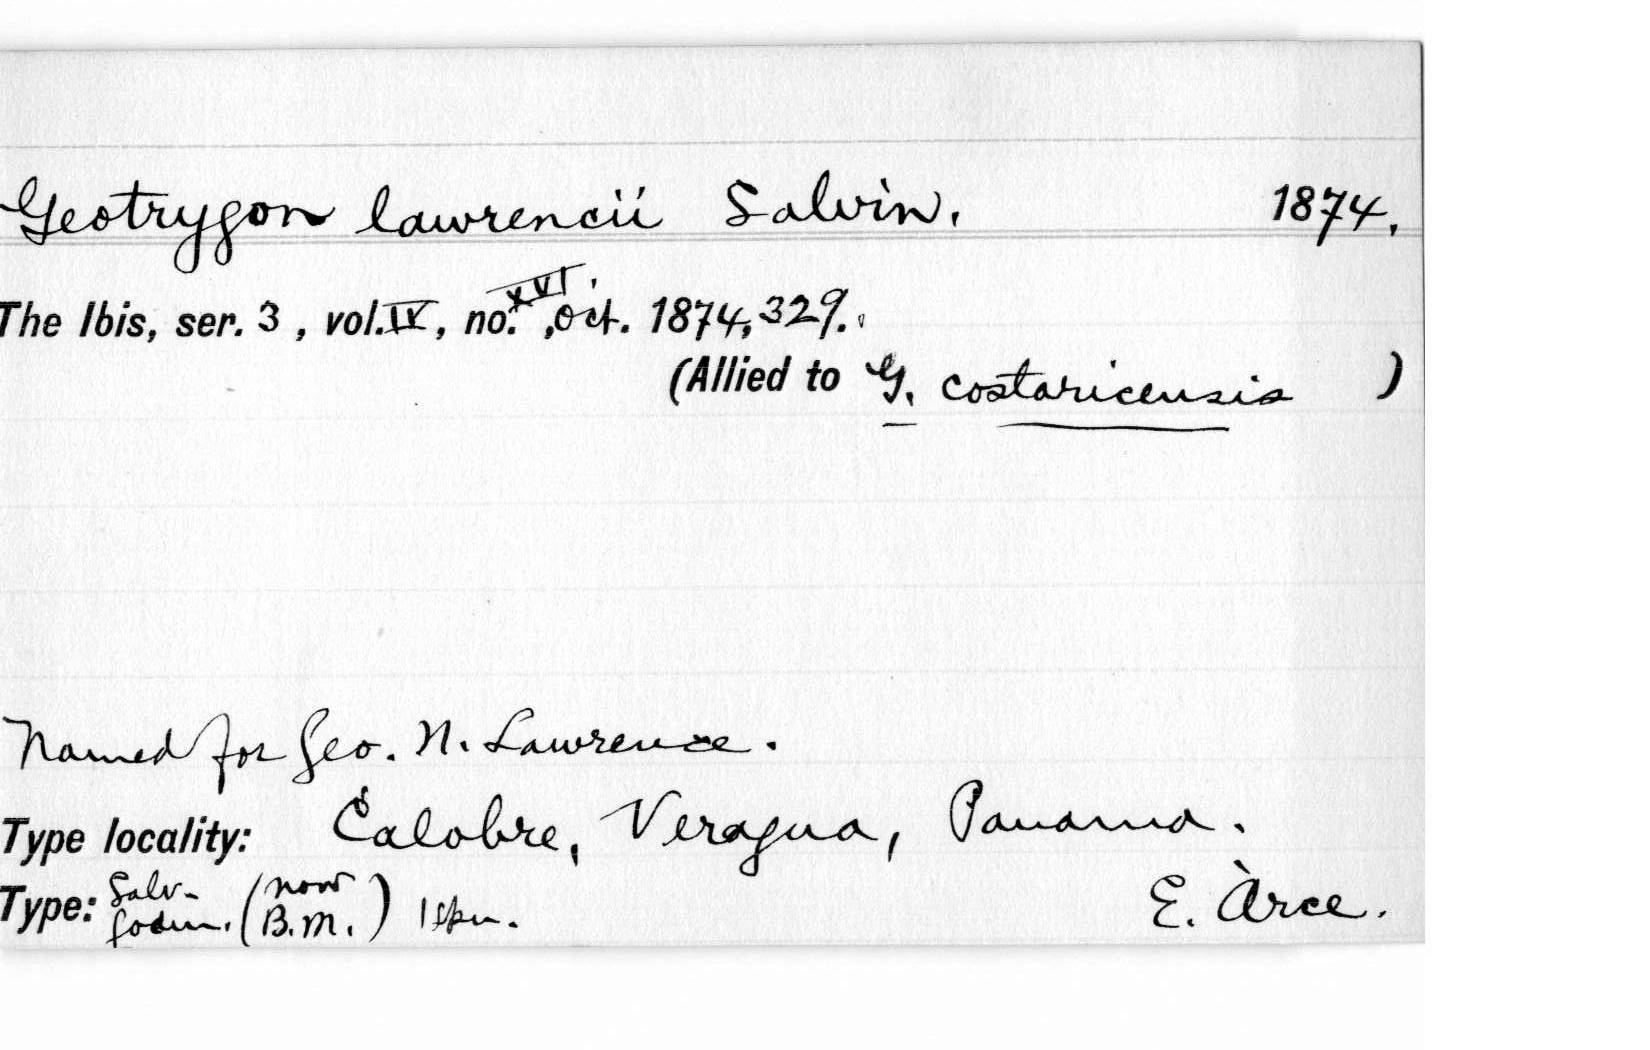 Geotrygon lawrencii Salvin. 1874.
The Ibis, ser. 3, vol. IV, no. XVI, Oct. 1874, 329.
(Allied to G. costaricensis )
Named for Geo. N. Lawrence.
Type locality: Calobre, Veragua, Panama.
Type: Salv-Godm. (now B.M.) 1 spm. E. Arce.